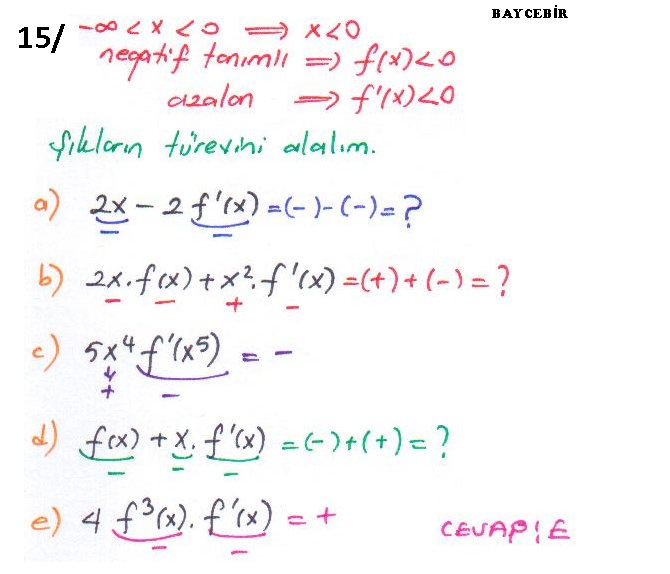 BAYCEBİR
15/ -∞ < x < 0 ⟹ x<0
negatif tanımlı ⟹ f(x)<0
azalan ⟹ f'(x)<0
Şıkların türevini alalım.
a) 2x - 2 f'(x) = (-) - (-) = ?
- -
b) 2x.f(x) + x².f'(x) = (+) + (-) = ?
- - + -
c) 5x⁴ f'(x⁵) = -
+ -
d) f(x) + x.f'(x) = (-) + (+) = ?
- - -
e) 4 f³(x).f'(x) = +
- -
CEVAP: E